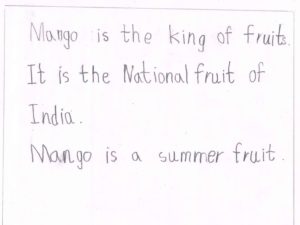 Mango is the king of fruits.
It is the National fruit of
India.
Mango is a summer fruit.